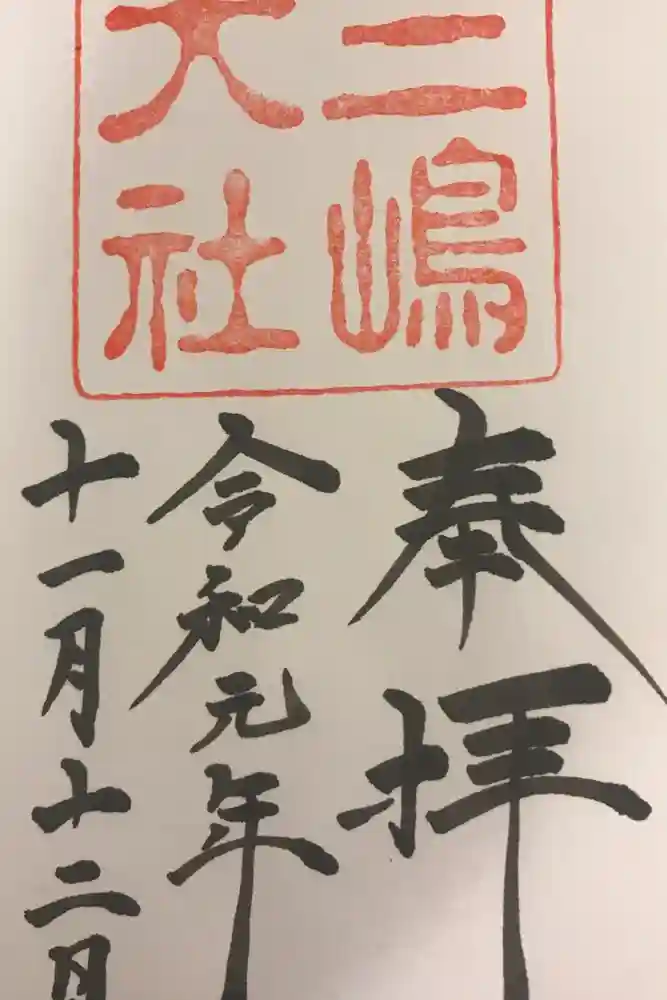 三嶋
大社
奉拝
令和元年
十一月十二日